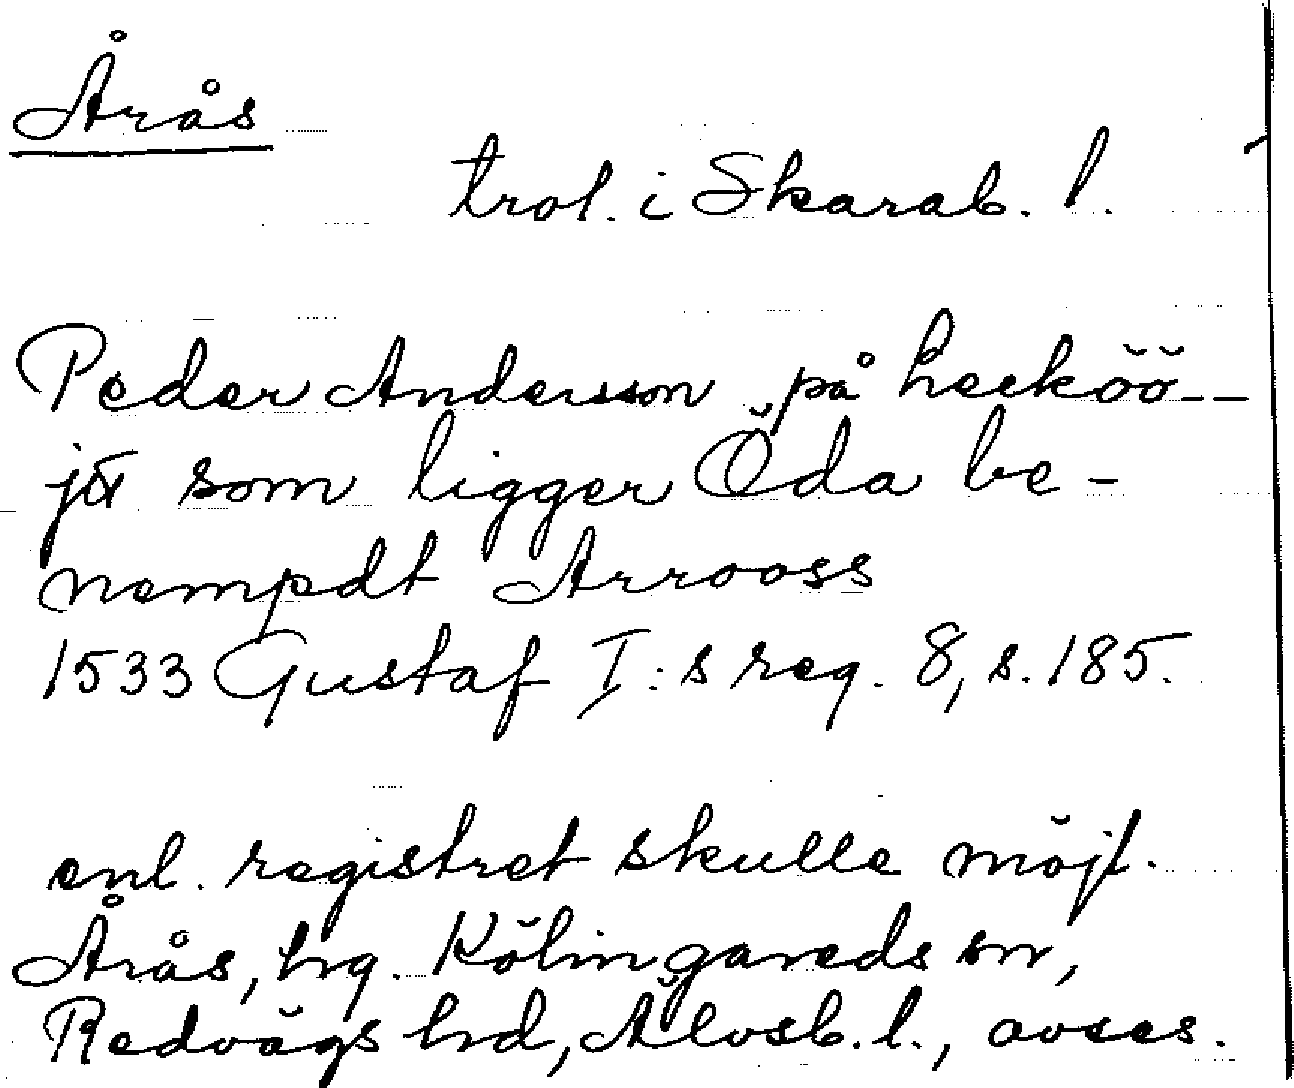 Årås
trol. i Skarab. l.
Peder Andersson på heeköö--
som ligger Öda be-
nempdt Arrooss
1533 Gustaf I:s reg. 8, s. 185.
enl. registret skulle möjl.
Årås, hg. Kölingareds sn,
Redvägs hd, Älvsb. l., avses.